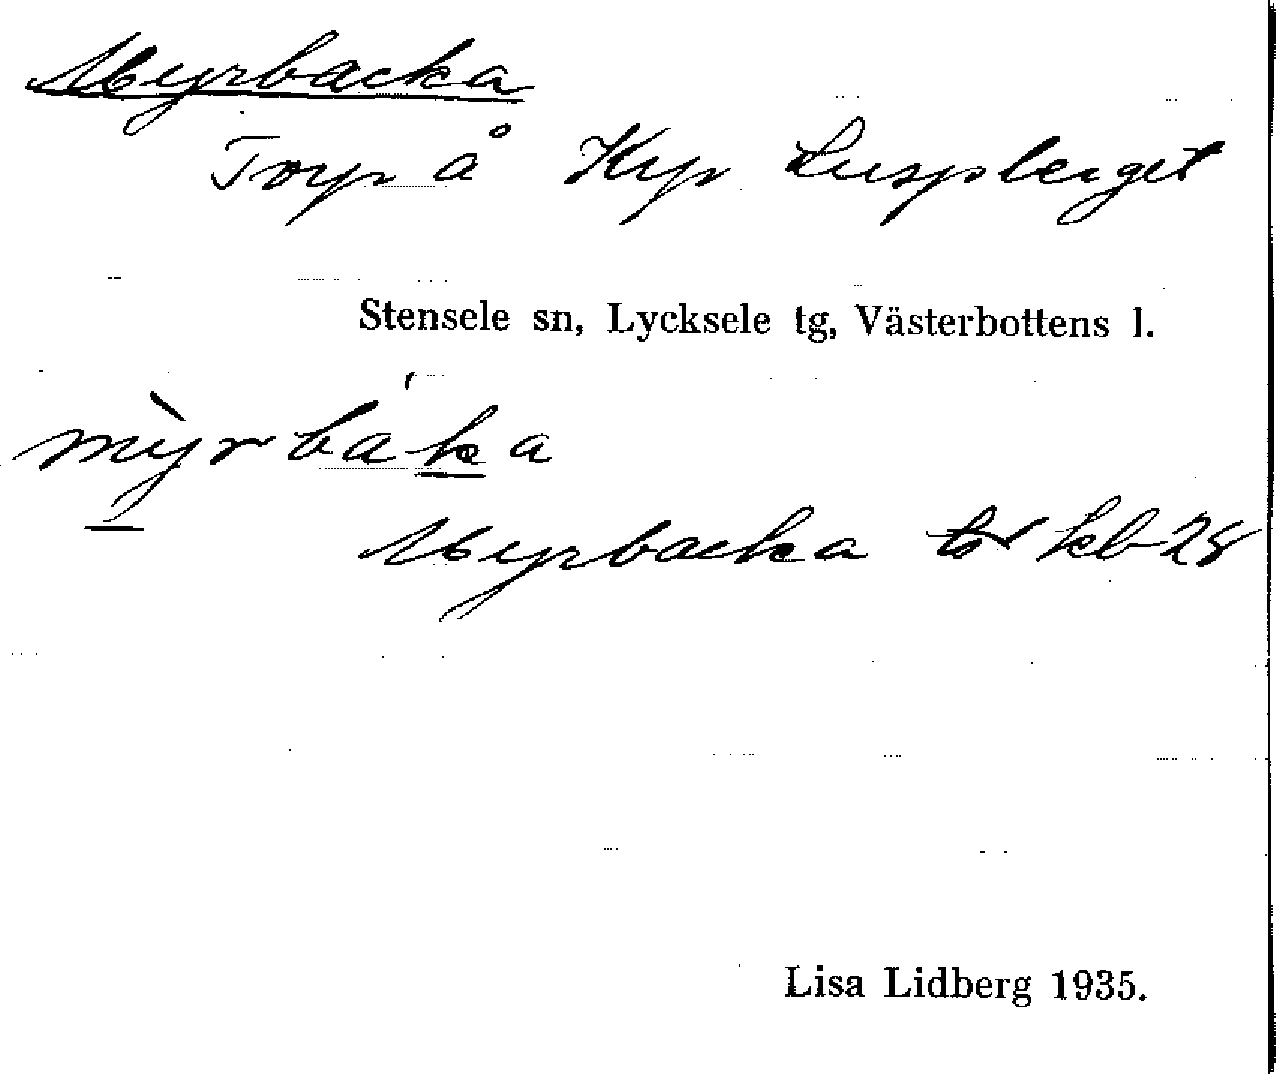 Myrbacka
Torp å Krp Luspberget
Stensele sn, Lycksele tg, Västerbottens l.
mỳrbáka
Myrbacka tor kb 28
Lisa Lidberg 1935.